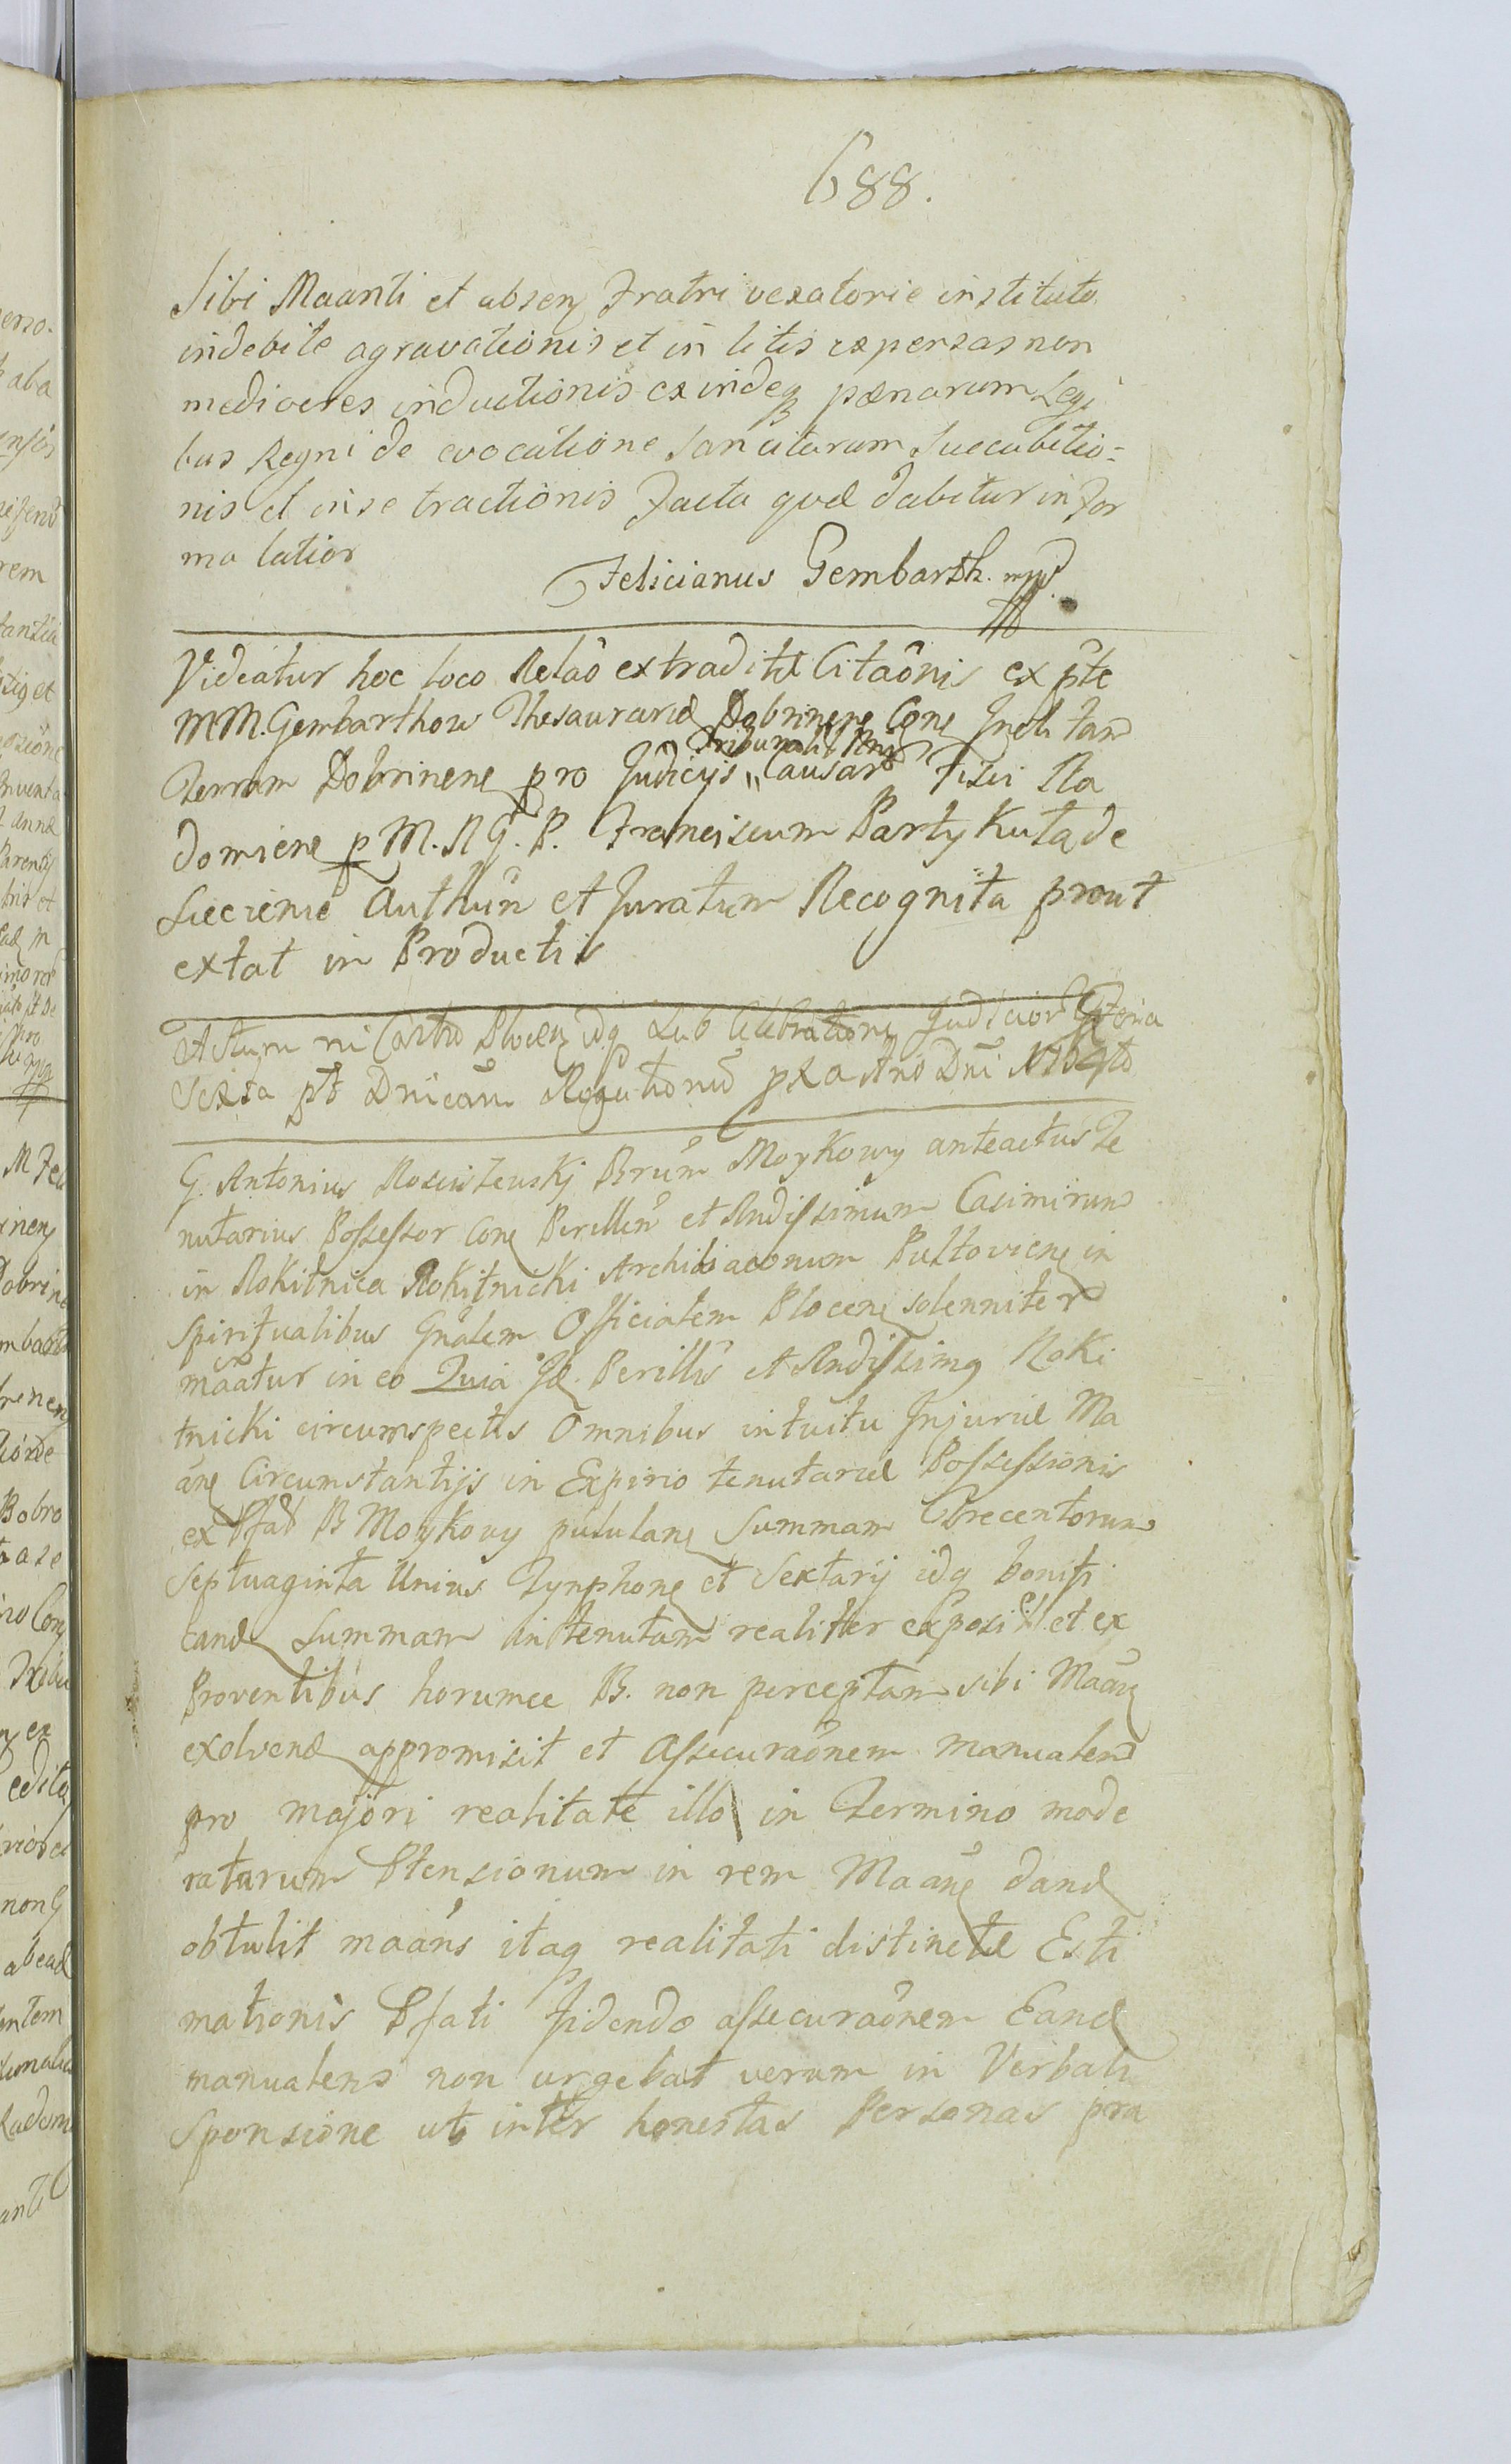 688.
Sibi Maanti et absen Fratri vexatorie instituto
indebite agravationis et in litis expensas non
mediocres inductionis exindeq pænarum Legi
bus Regni de evocatione Sancitarum Succubitio=
nis et in se tractionis Facta quæ dabitur in for
ma latior
Felicianus Gembarth. mp
Videatur hoc loco Relaõ extraditæ Citaõnis ex pte
MM. Gembarthow Thesaurariæ Dobrinen Con Incli tam
Tribunalis
Terram Dobrinen pro Judicijs " Causar Fisci Ra
domien p M. R G. P. Franciscum Partykuta de
Siecienie Authún et Juratum Recognita prout
extat in Productis
Actum in Castro Plocen
Sexta pt Dnicam Rogationũ pxa Ano Dni
G. Antonius Rosciszewskj Brum Moykowy anteactus Te
nutarius Possessor Con Perillem et Rndissimum Casimirum
in Rokitnica Rokitnicki Archidiaconum Pultovien in
Spiritualibus Gnalem Officialem Plocen solenniter
maatur in eo Quia Id. Perillis et Rndissimq Roki
tnicki circumspectis Omnibus intuitu Injuriæ Ma
an Circumstantijs in Expirio tenutariæ Possessionis
ex Pfat B Moykowy pululan Summam Trecentorum
Septuaginta Unius Tynphon et Sextarij idq bonifi
cand Summam in tenutam realitter exposi et ex
Proventibus horumce B. non perceptam sibi Maan
exolvend appromisit et Assecuraõnem manualem
pro majori realitate illo in Termino mode
ratarum Ptensionum in rem Maan dand
obtulit maans itaq realitati distinctæ Esti
mationis Pfati fidendo assecuraõnem Eand
manualem non urgebat verum in Verbali
Sponsione ut inter honestas Personas pra